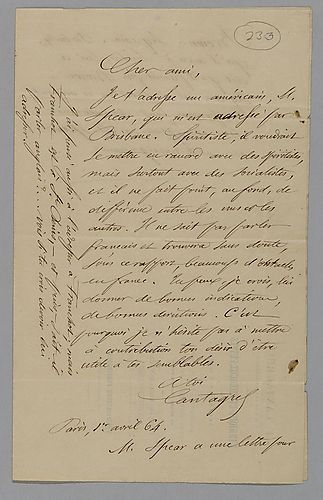 233
Cher ami,
Je t'adresse un américain, M.
Spear, qui m'est adressé par
Brisbane. Spiritiste, il voudrait
se mettre en rapport avec des spiritistes,
mais surtout avec des socialistes,
et il ne fait point, au fond, de
différence entre les uns et les
autres. Il ne sait pas parler
français et trouvera sans doute,
sous ce rapport, beaucoup d'obstacles
en france. Tu peux, je crois, lui
donner de bonnes indications,
de bonnes directions. C'est
pourquoi je n'hésite pas à mettre
à contribution ton désir d'être
utile à tes semblables.
A toi
Cantagrel
Paris, 1er avril 64.
M. Spear a une lettre pour
J'ai pensé aussi à
mais
français